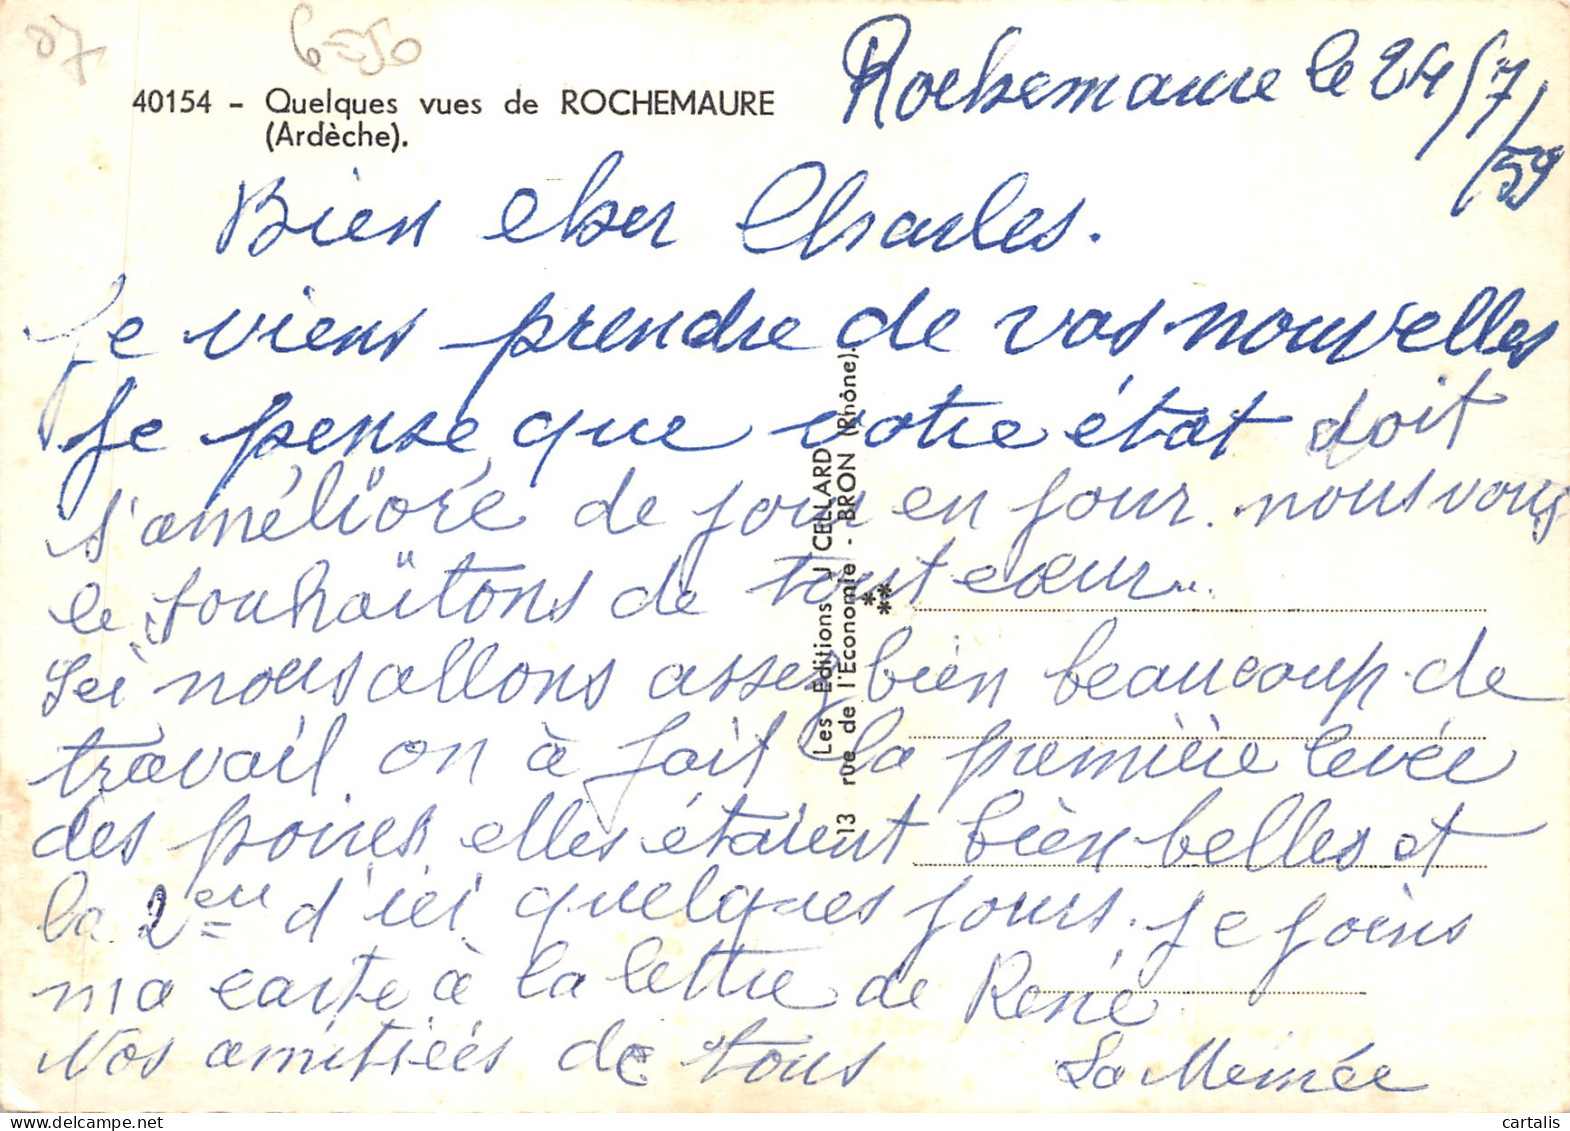 07
6=50
40154 - Quelques vues de ROCHEMAURE
(Ardèche).
Rochemaure le 24/7/59
Bien cher Charles.
Je viens prendre de vos nouvelles
Je pense que votre état doit
s'améliore de jour en jour. nous vous
le souhaitons de tout cœur..
Ici nous allons assez bien beaucoup de
travail on à fait la première levée
des poires elles étaient bien belles et
la 2eu d'ici quelques jours. Je joins
ma carte à la lettre de René.
Nos amitiées de tous
La Mémée
Les Editions J CELLARD
13 rue de l'Economie - BRON (Rhône).
cartalis
delcampe.net